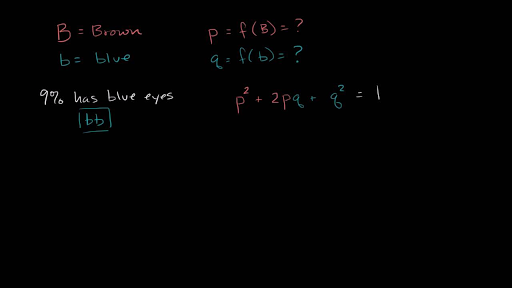 B = Brown
p = f(B) = ?
b = blue
q = f(b) = ?
9% has blue eyes
p² + 2pq + q² = 1
bb